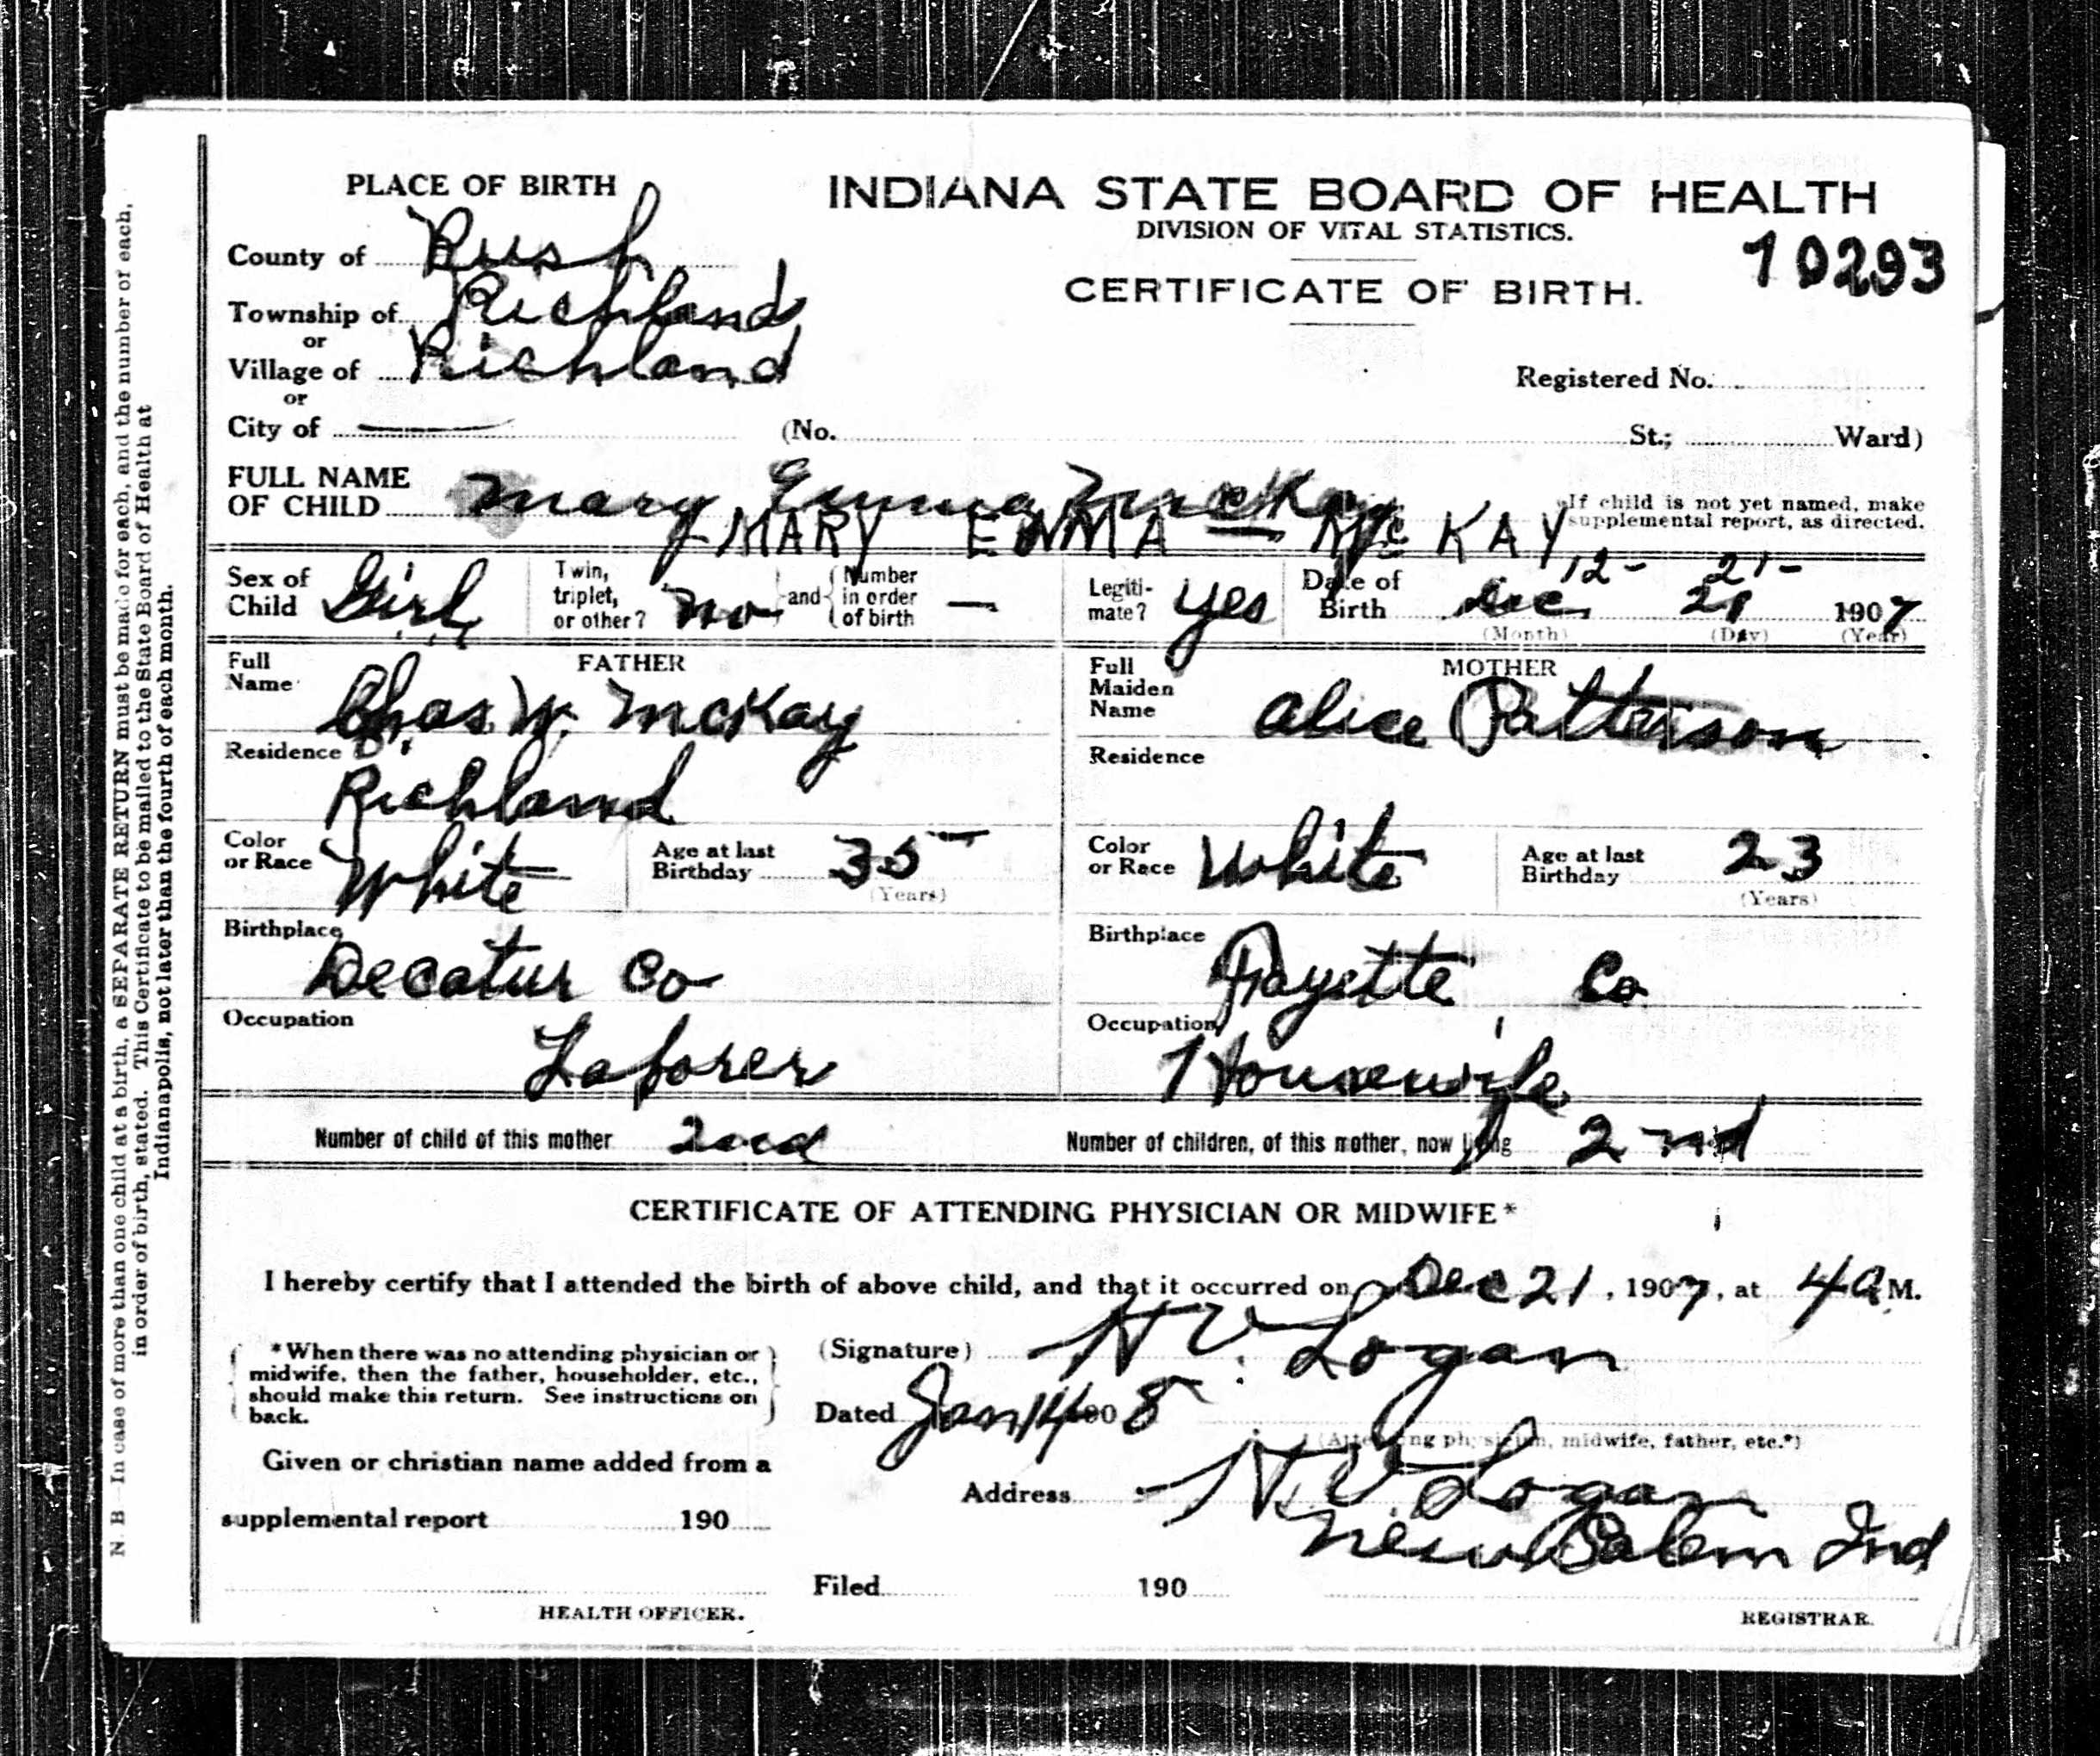 PLACE OF BIRTH
INDIANA STATE BOARD OF HEALTH
DIVISION OF VITAL STATISTICS.
10293
CERTIFICATE OF BIRTH.
County of Rush
Township of Richland
or
Village of Richland
or
Registered No.
City of (No. St.; Ward)
FULL NAME
OF CHILD Mary Emma McKay
MARY EMMA — McKAY
If child is not yet named, make
supplemental report, as directed.
Sex of
Child Girl
Twin,
triplet,
or other? no
and
Number
in order
of birth —
Legiti-
mate? yes
Date of
Birth Dec. 21 1907
12 - 21 -
(Month) (Day) (Year)
FATHER
Full
Name Chas W. McKay
Residence
Richland
Color
or Race White
Age at last
Birthday 35
(Years)
Birthplace
Decatur Co
Occupation
Laborer
MOTHER
Full
Maiden
Name Alice Patterson
Residence
Color
or Race White
Age at last
Birthday 23
(Years)
Birthplace
Fayette Co
Occupation
Housewife
Number of child of this mother 2nd
Number of children, of this mother, now living 2nd
CERTIFICATE OF ATTENDING PHYSICIAN OR MIDWIFE*
I hereby certify that I attended the birth of above child, and that it occurred on Dec 21, 1907, at 4 a M.
*When there was no attending physician or
midwife, then the father, householder, etc.,
should make this return. See instructions on
back.
(Signature) N V. Logan
Dated Jan 14 1908
(Attending physician, midwife, father, etc.*)
Given or christian name added from a
supplemental report 190
Address N. V. Logan
New Salem Ind
Filed 190
HEALTH OFFICER.
REGISTRAR.
N. B—In case of more than one child at a birth, a SEPARATE RETURN must be made for each, and the number of each,
in order of birth, stated. This Certificate to be mailed to the State Board of Health at
Indianapolis, not later than the fourth of each month.